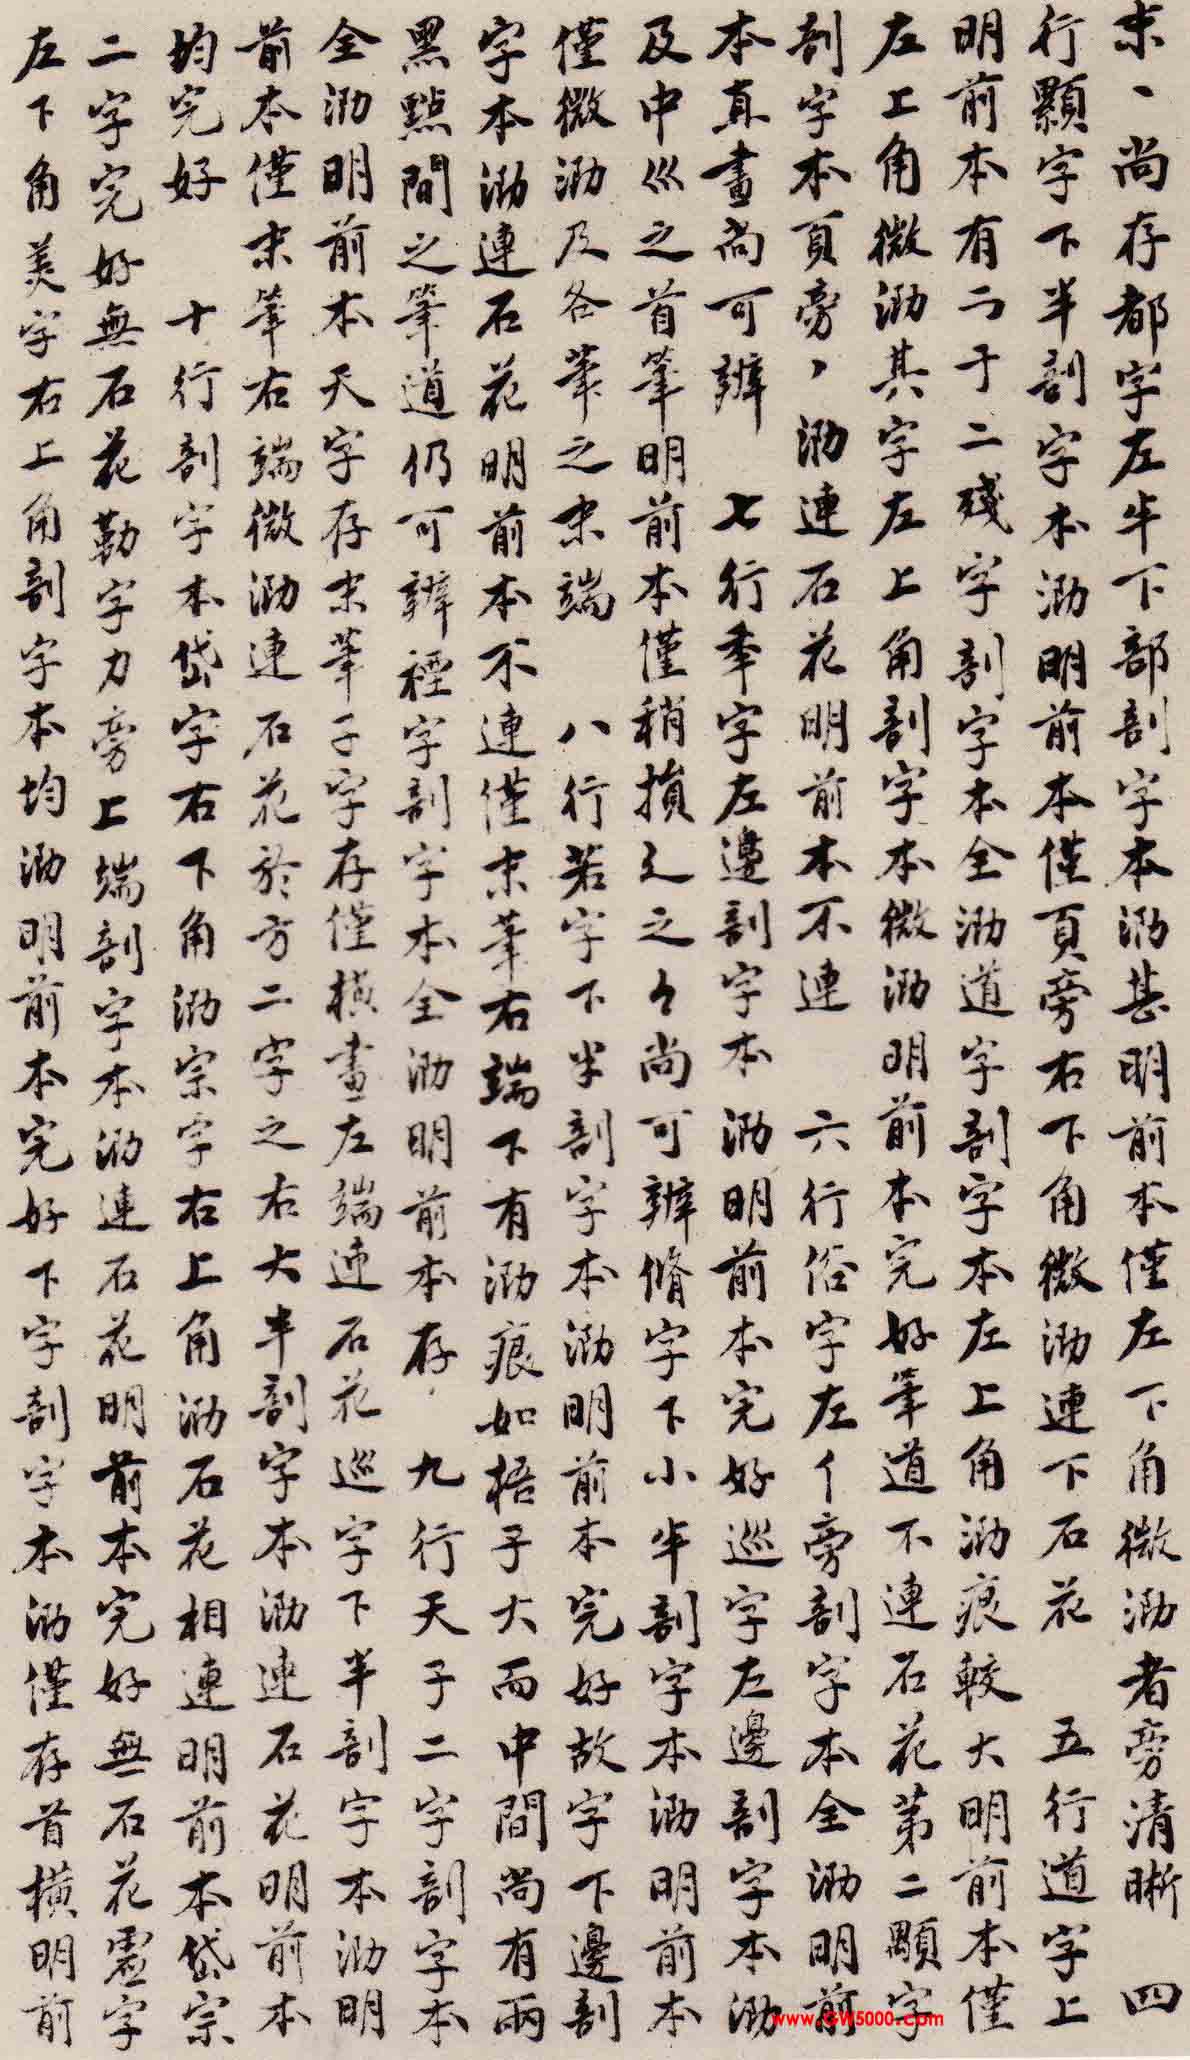 末丶尚存都字左半下部剖字本泐甚明前本僅左下角微泐者旁清晰　四
行顯字下半剖字本泐明前本僅頁旁右下角微泐連下石花　五行道字上
明前本有二于二殘字剖字本全泐道字剖字本左上角泐痕較大明前本僅
左上角微泐其字左上角剖字本微泐明前本完好筆道不連石花第二顯字
剖字本頁旁丿泐連石花明前本不連　六行俗字左亻旁剖字本全泐明前
本真畫尚可辨　七行季字左邊剖字本泐明前本完好巡字左邊剖字本泐
及中巛之首筆明前本僅稍損辶之く尚可辨脩字下小半剖字本泐明前本
僅微泐及各筆之末端　八行若字下半剖字本泐明前本完好故字下邊剖
字本泐連石花明前本不連僅末筆右端下有泐痕如梧子大而中間尚有兩
黑點間之筆道仍可辨禋字剖字本全泐明前本存　九行天子二字剖字本
全泐明前本天字存末筆子字存僅橫畫左端連石花巡字下半剖字本泐明
前本僅末筆右端微泐連石花於方二字之右大半剖字本泐連石花明前本
均完好　十行剖字本岱字右下角泐宗字右上角泐石花相連明前本岱宗
二字完好無石花勒字力旁上端剖字本泐連石花明前本完好無石花虛字
左下角美字右上角剖字本均泐明前本完好下字剖字本泐僅存首橫明前
www.GW5000.com